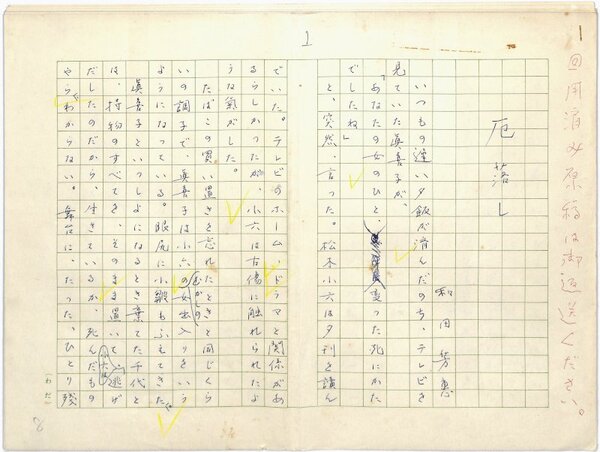 回用済み原稿は御返送ください。
1
厄落し
和田芳恵
いつもの遅い夕飯が済んだのち、テレビを
見ていた真喜子が、
「あなたの女のひと、変った死にかた
でしたね」
と、突然、言った。松木小六は夕刊を読ん
でいた。テレビのホーム・ドラマと関係があ
るらしかったが、小六は古傷に触れられたよ
うな気がした。
たばこの買い置きを忘れたときと同じくら
いの調子で、真喜子は小六のむかしの女出入りをいう
ようになっている。眼尻に小皺もふえてきた。
真喜子といっしょになるとき棄てた千代と
は、持物のすべてを、そのまま置いて小六は逃げ
だしたのだから、生きているか、死んだもの
やらわからない。舞台に、たったひとり残
(わだ)
8